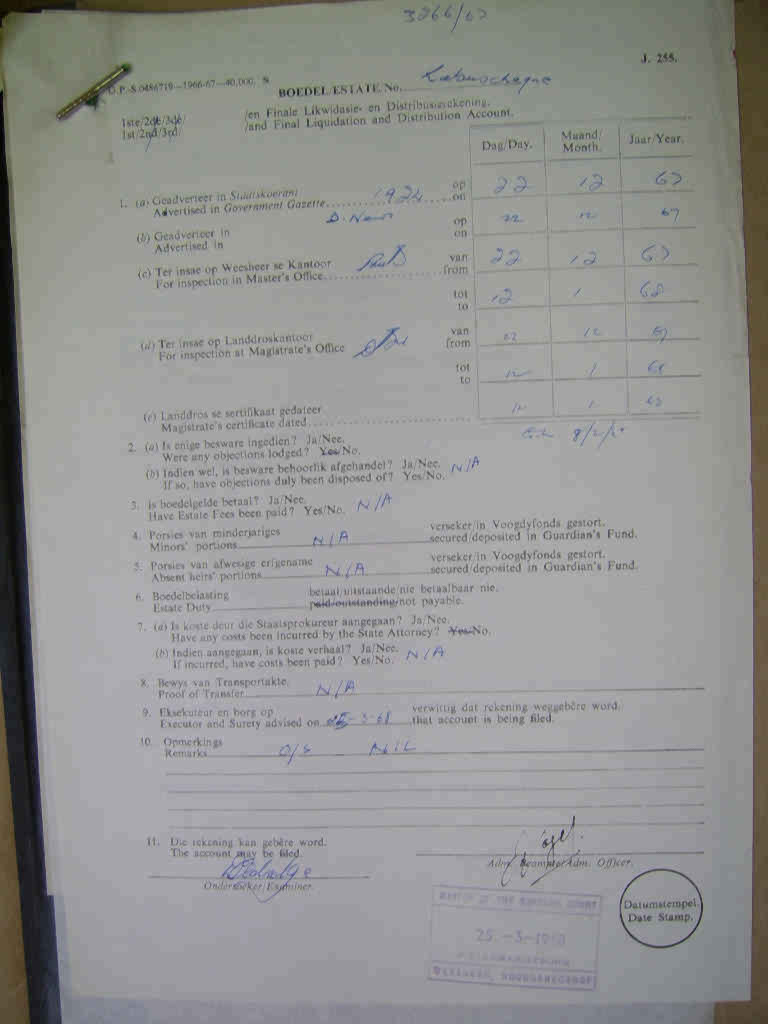 3266/67
J. 255.
G.P.-S.0486719—1966-67—40,000. S
BOEDEL/ESTATE No.
1ste/2de/3de/ /en Finale Likwidasie- en Distribusierekening.
1st/2nd/3rd/ /and Final Liquidation and Distribution Account.
Dag/Day. Maand/Month. Jaar/Year.
1. (a) Geadverteer in Staatskoerant op
Advertised in Government Gazette 1924 on 22 12 67
(b) Geadverteer in D. News op
Advertised in on 22 12 67
(c) Ter insae op Weesheer se Kantoor van
For inspection in Master's Office from 22 12 67
tot
to 12 1 68
(d) Ter insae op Landdroskantoor van
For inspection at Magistrate's Office from 22 12 67
tot
to 12 1 68
(e) Landdros se sertifikaat gedateer
Magistrate's certificate dated 12 1 68
2. (a) Is enige besware ingedien? Ja/Nee.
Were any objections lodged? Yes/No.
(b) Indien wel, is besware behoorlik afgehandel? Ja/Nee.
If so, have objections duly been disposed of? Yes/No. N/A
3. Is boedelgelde betaal? Ja/Nee.
Have Estate Fees been paid? Yes/No. N/A
4. Porsies van minderjariges verseker/in Voogdyfonds gestort.
Minors' portions N/A secured/deposited in Guardian's Fund.
5. Porsies van afwesige erfgename verseker/in Voogdyfonds gestort.
Absent heirs' portions N/A secured/deposited in Guardian's Fund.
6. Boedelbelasting betaal/uitstaande/nie betaalbaar nie.
Estate Duty paid/outstanding/not payable.
7. (a) Is koste deur die Staatsprokureur aangegaan? Ja/Nee.
Have any costs been incurred by the State Attorney? Yes/No.
(b) Indien aangegaan, is koste verhaal? Ja/Nee.
If incurred, have costs been paid? Yes/No. N/A
8. Bewys van Transportakte.
Proof of Transfer N/A
9. Eksekuteur en borg op verwittig dat rekening weggebêre word.
Executor and Surety advised on 25-3-68 that account is being filed.
10. Opmerkings
Remarks O/S NIL
11. Die rekening kan gebêre word.
The account may be filed.
Adm. Beampte/Adm. Officer.
Ondersoeker/Examiner.
MASTER OF THE SUPREME COURT
25. -3- 1968
PIETERMARITZBURG
WEESHEER, HOOGGEREGSHOF
Datumstempel.
Date Stamp.